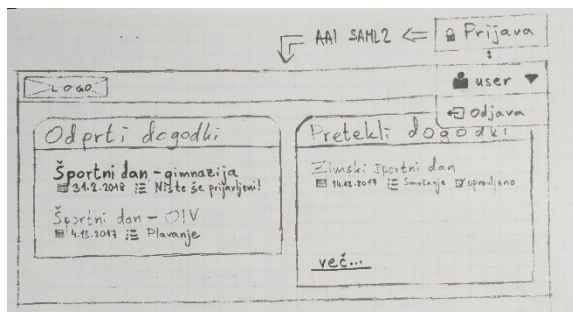 AAI SAML2
Prijava
LOGO
user
Odjava
Odprti dogodki
Športni dan - gimnazija
31.2.2018 Niste še prijavljeni!
Športni dan - OIV
4.13.2017 Plavanje
Pretekli dogodki
Zimski športni dan
14.12.2017 Smučanje opravljeno
več...